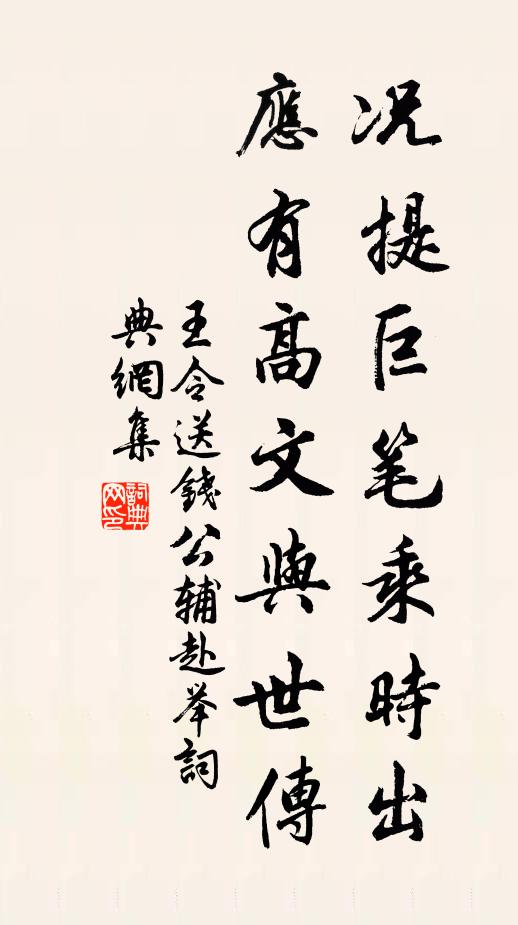 况提巨笔乘時出
應有高文與世傳
王令送錢公輔赴举詞
典網集
詞典网印